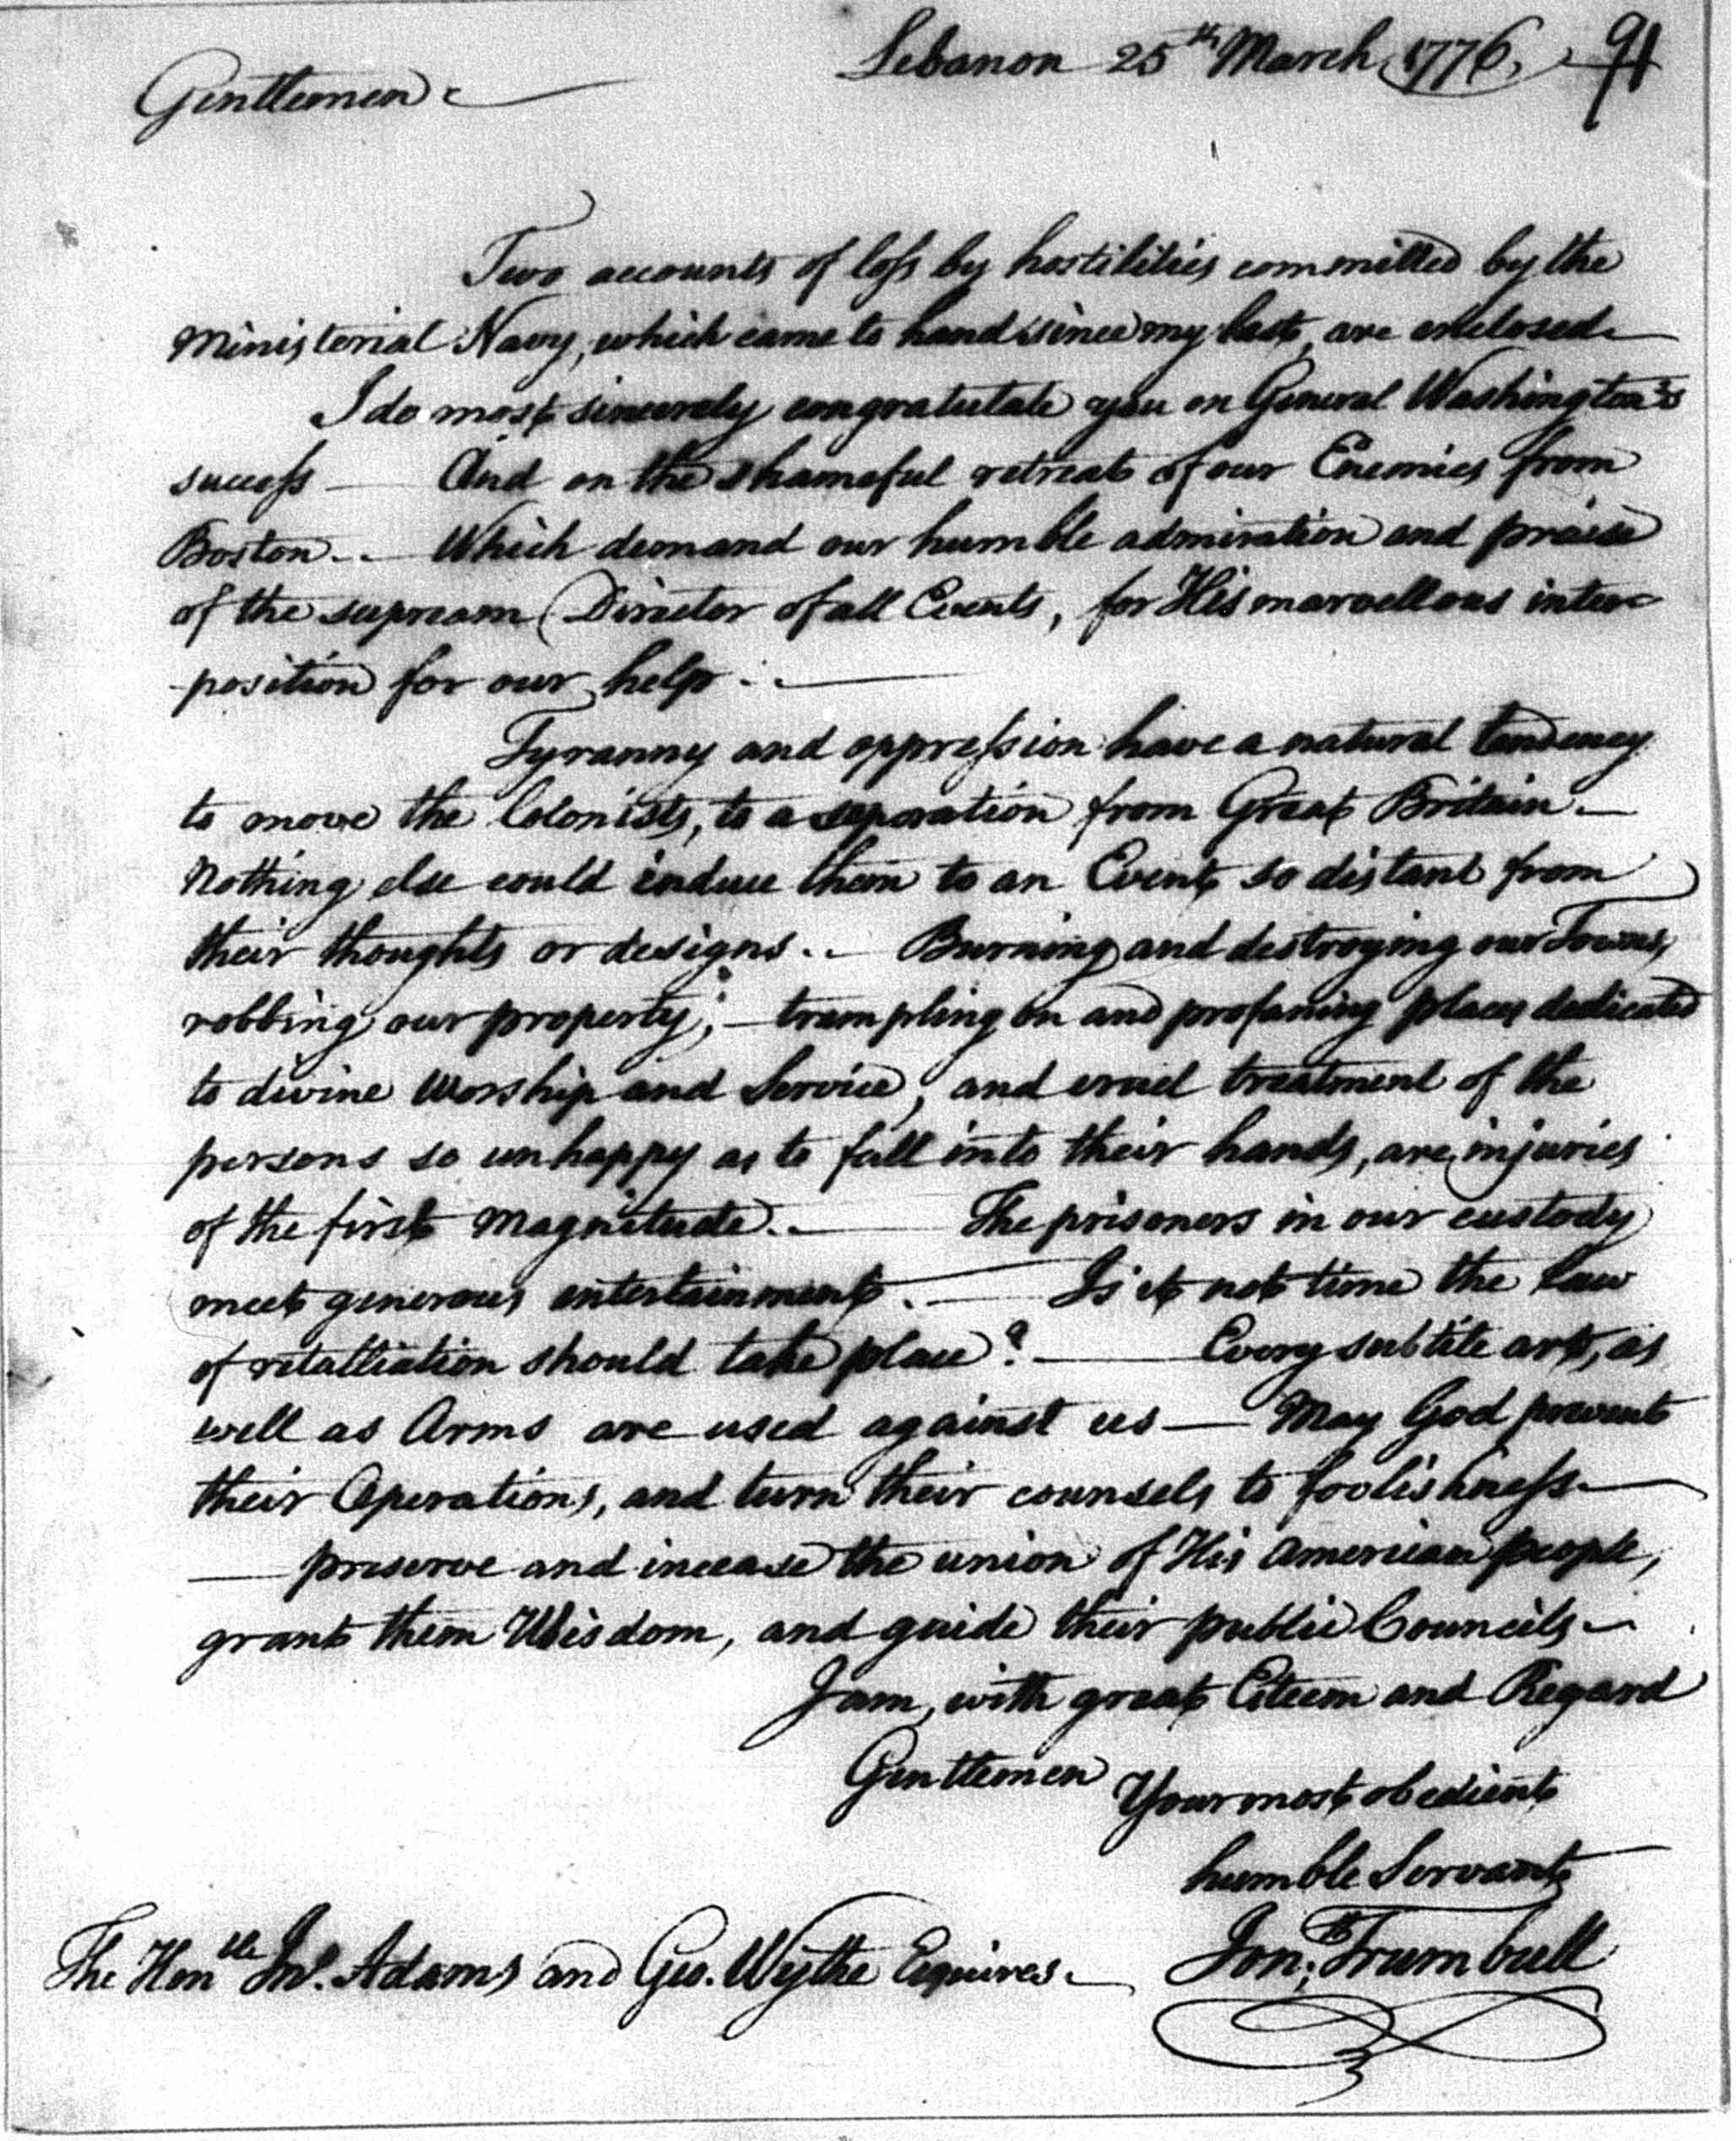 Lebanon 25th March 1776, 91
Gentlemen
Two accounts of loss by hostilities committed by the
Ministerial Navy, which came to hand since my last, are enclosed
I do most sincerely congratulate you on General Washington's
success — And on the shameful retreat of our Enemies from
Boston.. — Which demand our humble admiration and praise
of the supream Director of all Events, for His marvellous inter-
-position for our help. —
Tyranny and oppression have a natural tendency
to move the Colonists, to a separation from Great Britain. —
Nothing else could induce them to an Event so distant from
their thoughts or designs.. — Burning and destroying our Towns,
robbing our property; — trampling on and profaning places dedicated
to divine Worship and Service, and cruel treatment of the
persons so unhappy as to fall into their hands, are injuries
of the first Magnitude. — The prisoners in our custody
meet generous entertainment. — Is it not time the Law
of retalliation should take place? — Every subtile art, as
well as Arms are used against us — May God prevent
their Operations, and turn their counsels to foolishness —
— preserve and increase the union of His American people,
grant them Wisdom, and guide their public Councils —
I am, with great Esteem and Regard
Gentlemen
Your most obedient
humble Servant
Jonth; Trumbull
The Honble Jno. Adams and Geo. Wythe Esquires. —